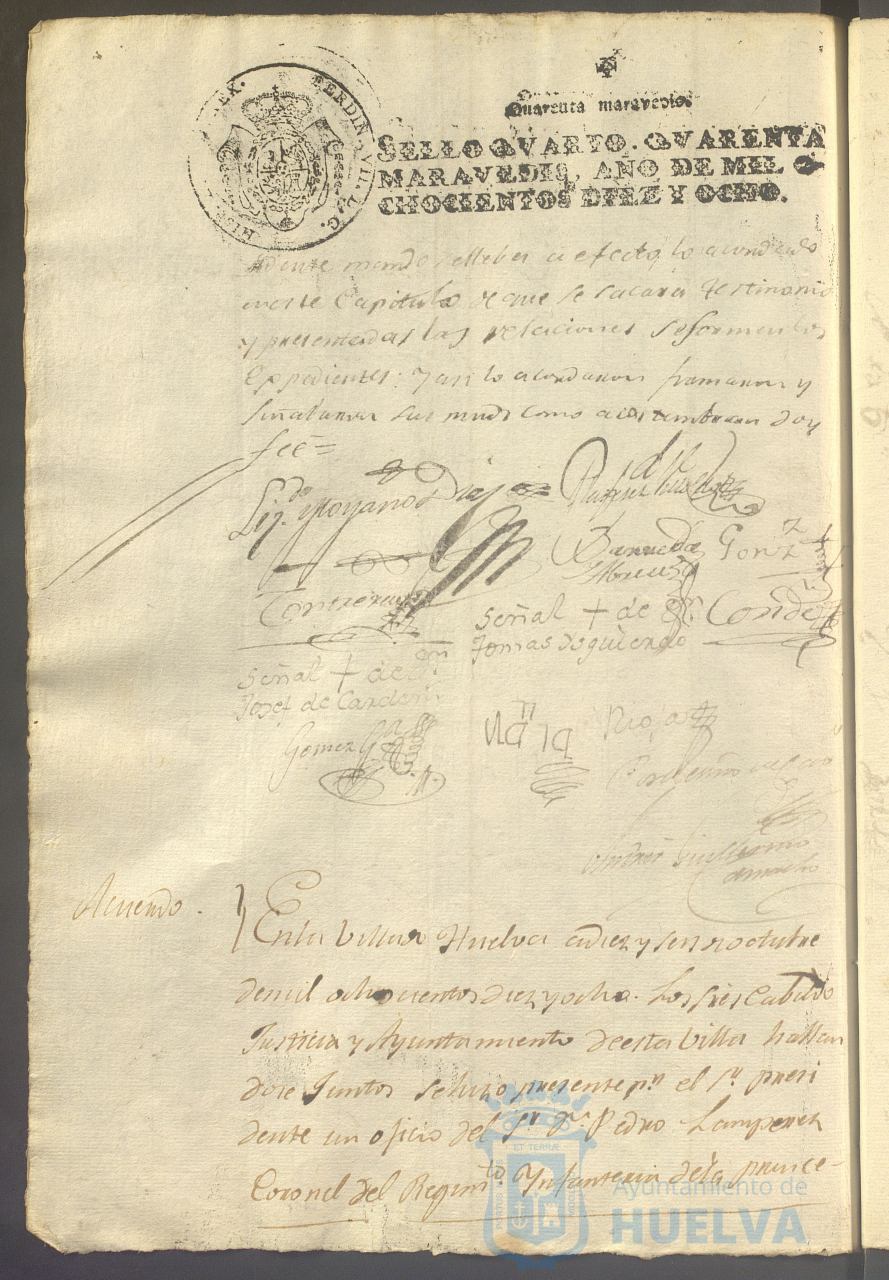 HISP. REX. FERDIN. VII. D. G.
Quarenta maravedis
SELLO QVARTO. QVARENTA
MARAVEDIS, AÑO DE MIL O
CHOCIENTOS DIEZ Y OCHO.
mando, llebar a efecto, lo acordado
en este Capitulo de que se sacará testimonio
y presentadas las relaciones se formen los
Expedientes: Y asi lo acordaron firmaron y
señalaron sus mrds como acostumbran doy
feé =
Liz.do Moyano Diaz
Barreda Gonz.z
Contreras
Señal + de Conde
Tomas Ysquierdo
Señal + de
Josef de Carden
Gomez
Rioja
Acuerdo.
En la Villa de Huelva a diez y seis de octubre
de mil ochocientos diez y ocho. Los Sres Cabildo
Justicia y Ayuntamiento de esta Villa hallan
dose Juntos se hizo presente pr el Sr presi
dente un oficio del Sr Dn Pedro Lamperez
Coronel del Regimto Ynfanteria de la prince-
ET TERRÆ
Ayuntamiento de
HUELVA